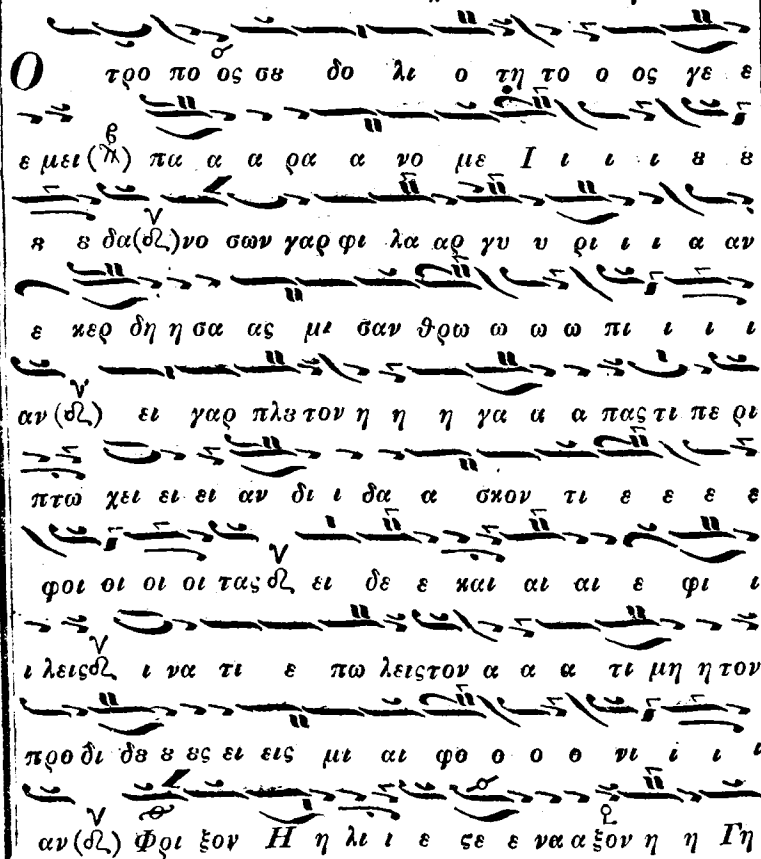 Ο τρο πο ος σȣ δο λι ο τη το ο ος γε ε
ε μει πα α α ρα α νο με Ι ι ι ι ȣ ȣ
ȣ ȣ δα νο σων γαρ φι λα αρ γυ υ ρι ι ι α αν
ε κερ δη η σα ας μι σαν θρω ω ω ω πι ι ι ι
αν ει γαρ πλȣ τον η η η γα α α πας τι πε ρι
πτω χει ει ει αν δι ι δα α σκον τι ε ε ε ε
φοι οι οι οι τας ει δε ε και αι αι ε φι ι
ι λεις ι να τι ε πω λεις τον α α α τι μη η τον
προ δι δȣ ȣ ȣς ει εις μι αι φο ο ο ο νι ι ι ι
αν Φρι ξον Η η λι ι ε ϛε ε να α ξον η η Γη